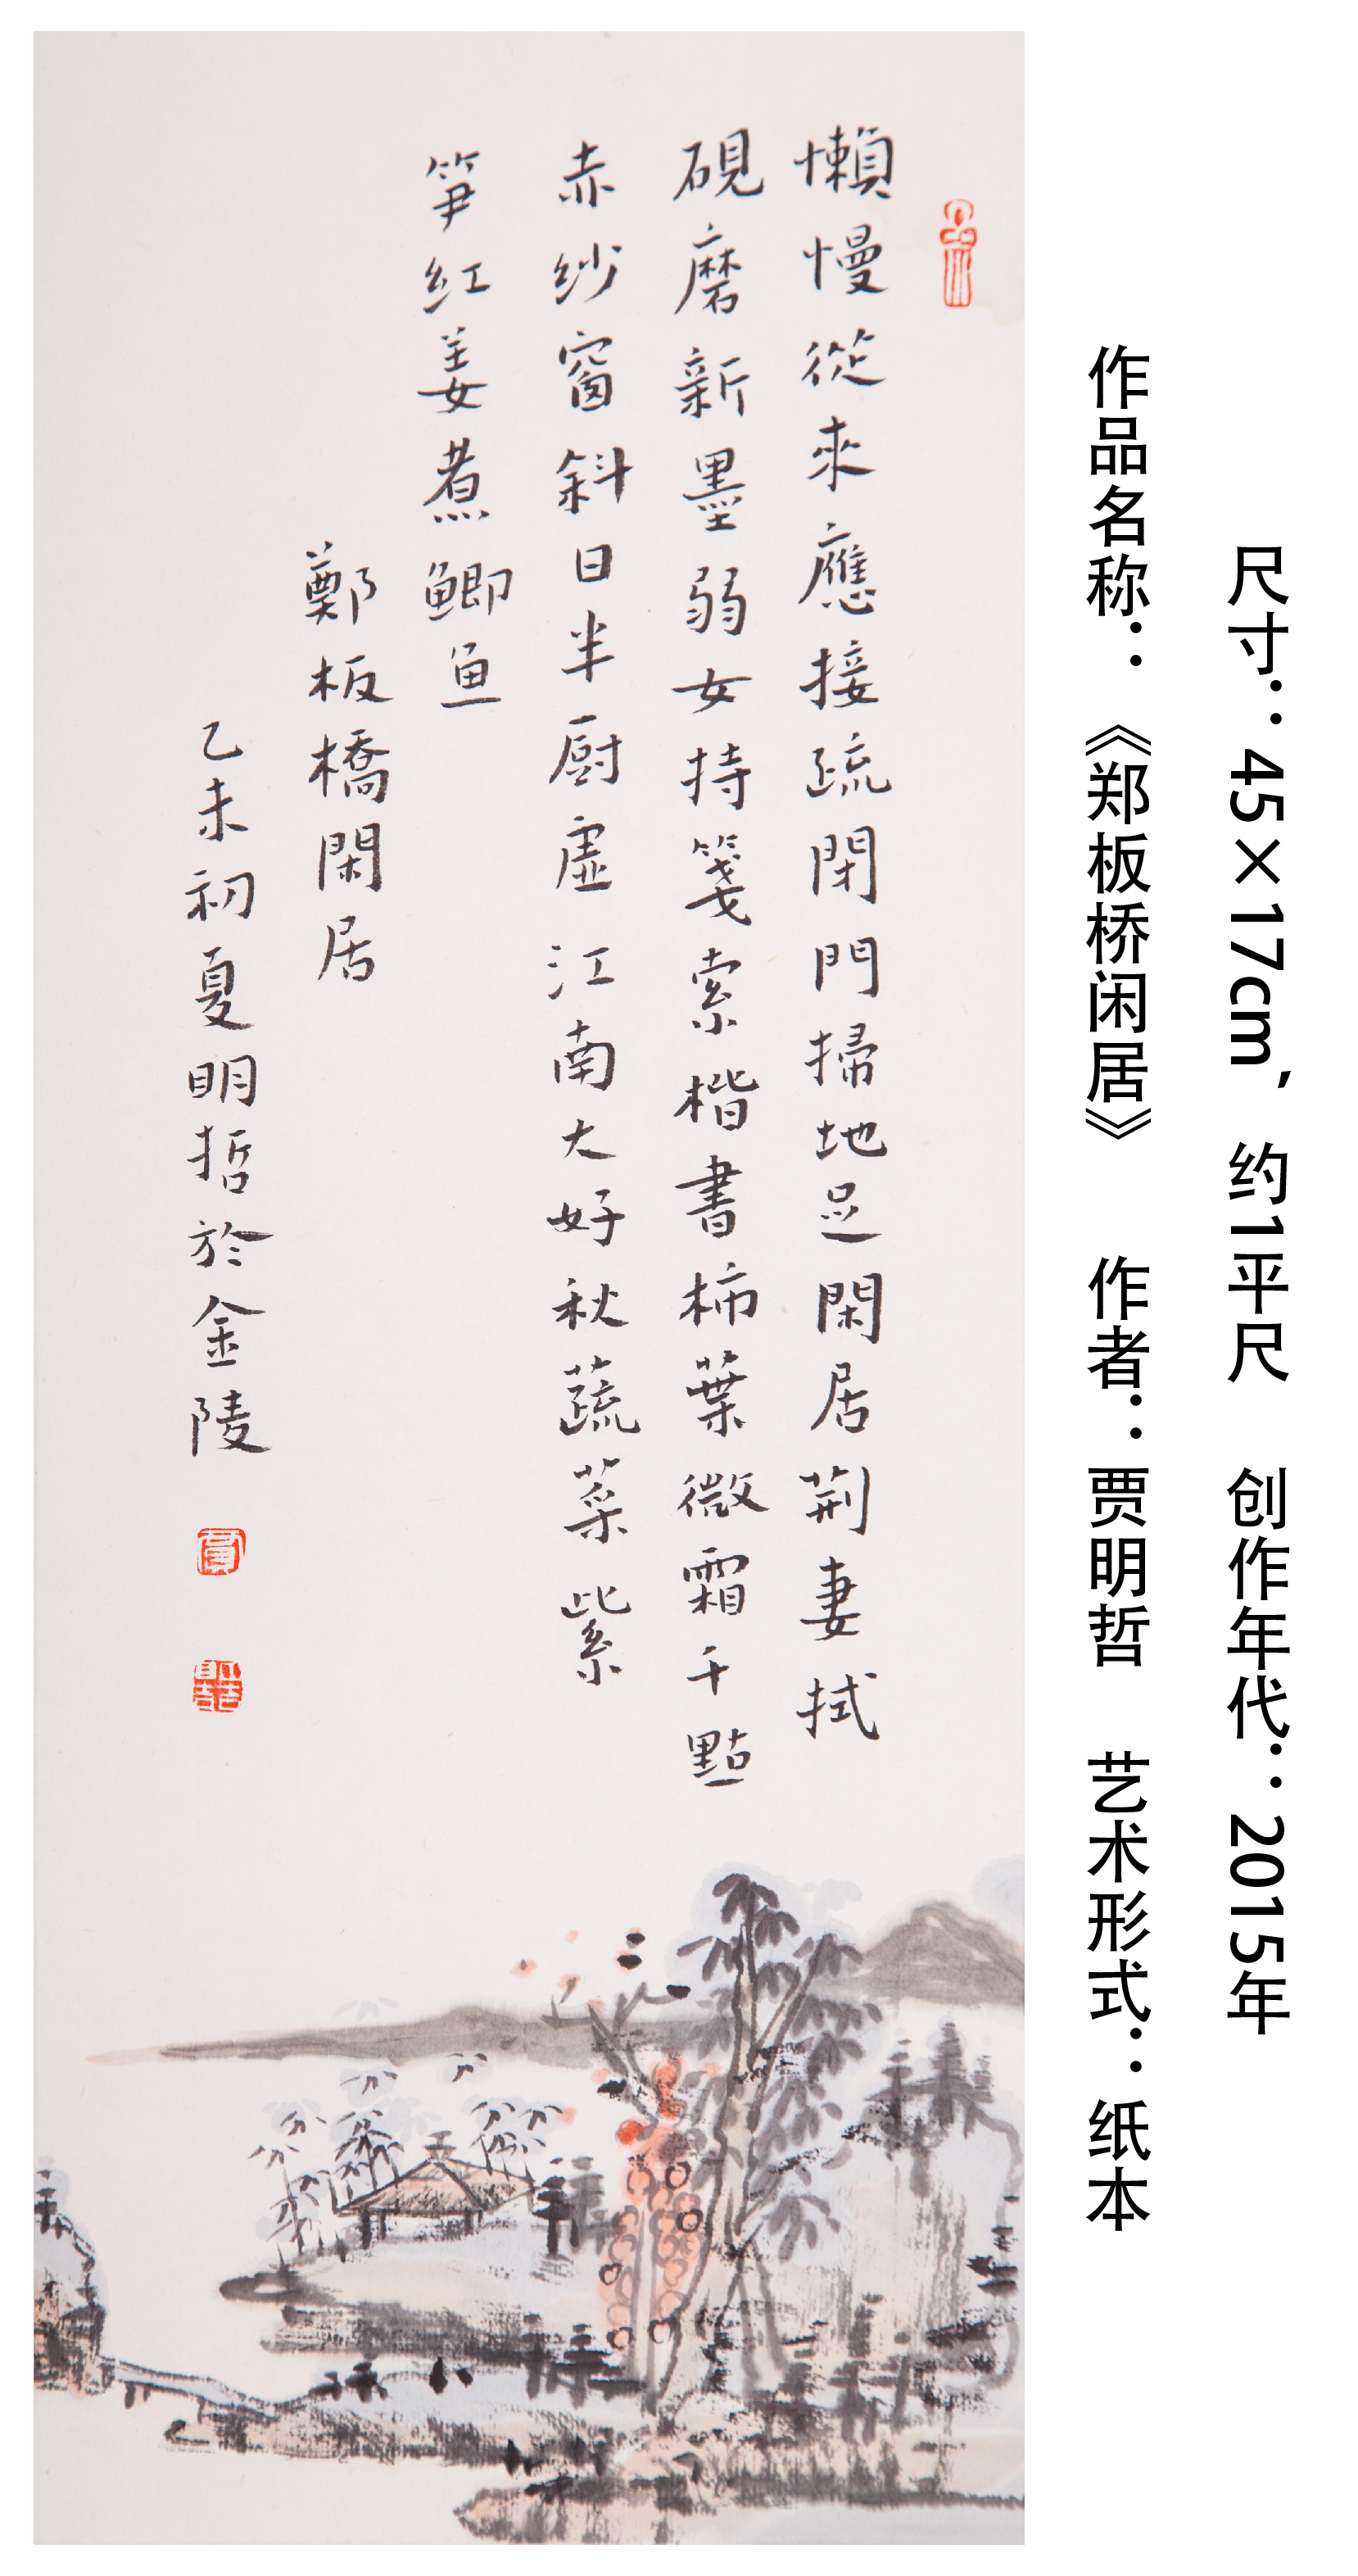 尺寸：45×17cm，约1平尺 创作年代：2015年
作品名称：《郑板桥闲居》 作者：贾明哲 艺术形式：纸本
懶慢從來應接疏閉門掃地足閑居荆妻拭
硯磨新墨弱女持箋索楷書柿葉微霜千點
赤紗窗斜日半厨虛江南大好秋蔬菜紫
笋红姜煮鲫鱼
鄭板橋閑居
乙未初夏明哲於金陵